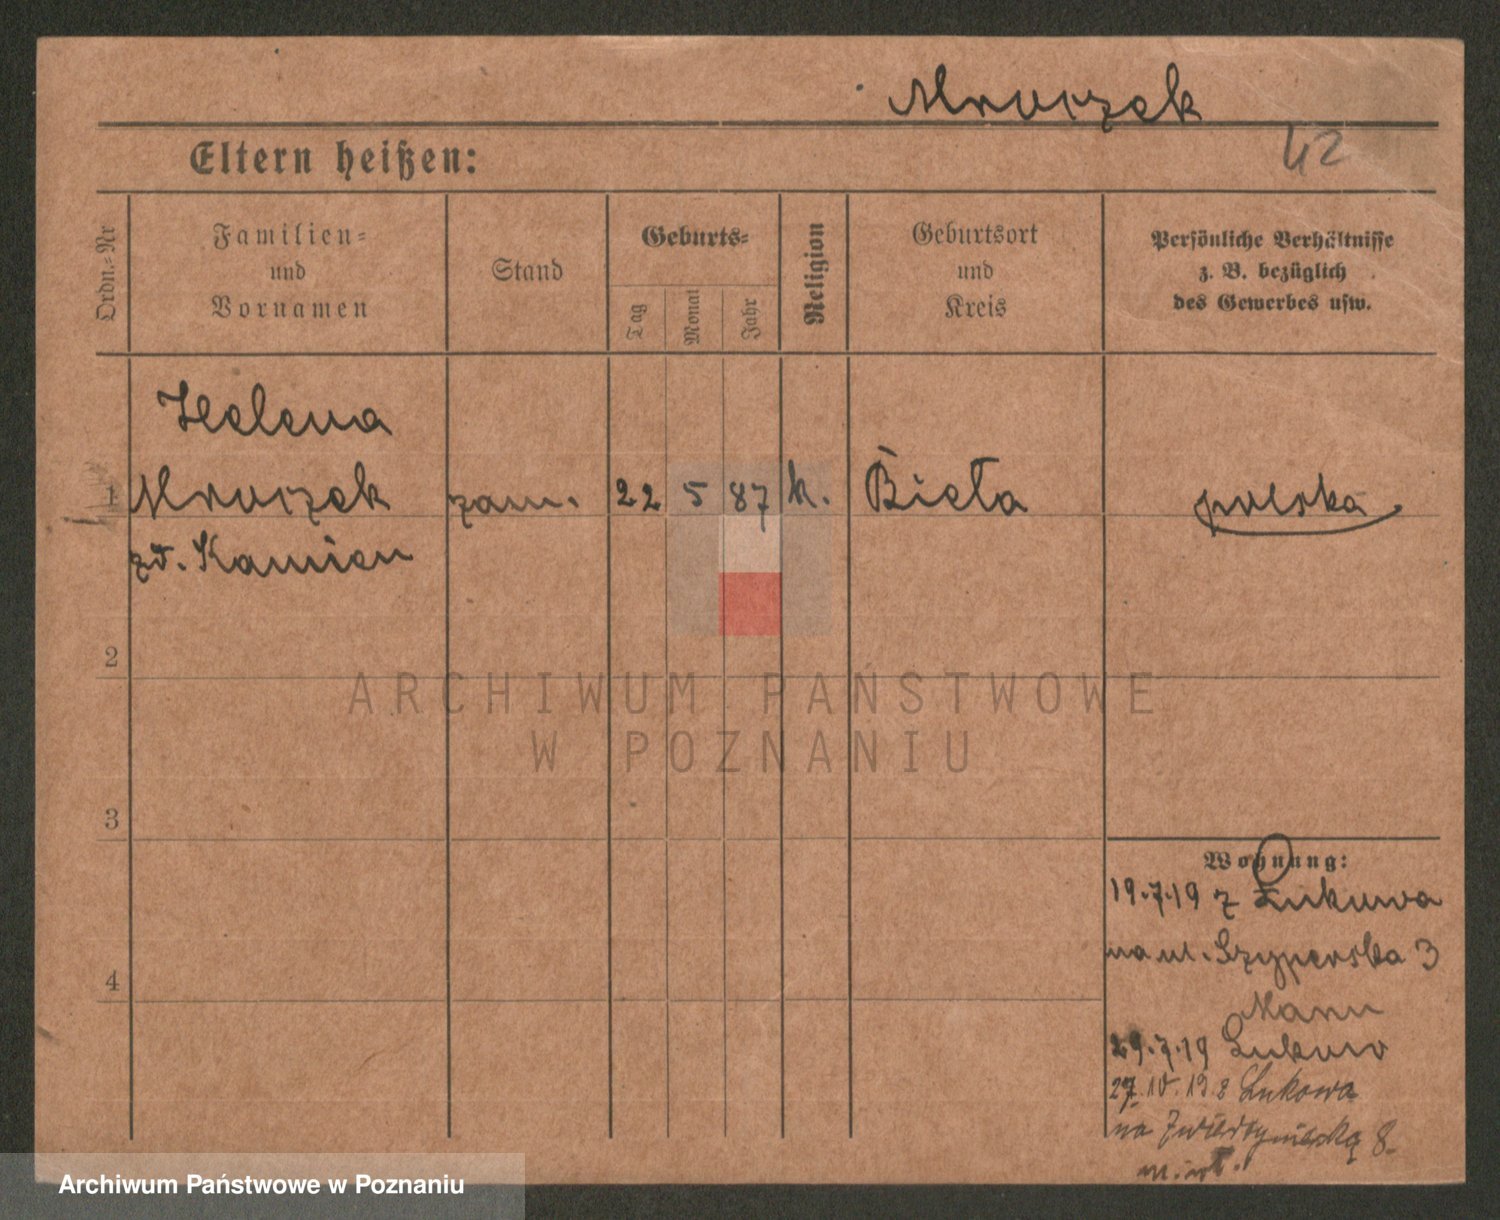 Mroczek
42
Eltern heißen:
Ordn.-Nr
Familien-
und
Vornamen
Stand
Geburts-
Tag
Monat
Jahr
Religion
Geburtsort
und
Kreis
Persönliche Verhältnisse
z. B. bezüglich
des Gewerbes usw.
Helena
1 Mroczek zam. 22 5 87 k. Bieła polska
zd. Kamien
2
ARCHIWUM PAŃSTWOWE
W POZNANIU
3
Wohnung:
19.7.19 z Łukowa
na ul. Szyperska 3
Mann
29.7.19 Łukowo
27.10.19 Łukowa
na 8
4
Archiwum Państwowe w Poznaniu